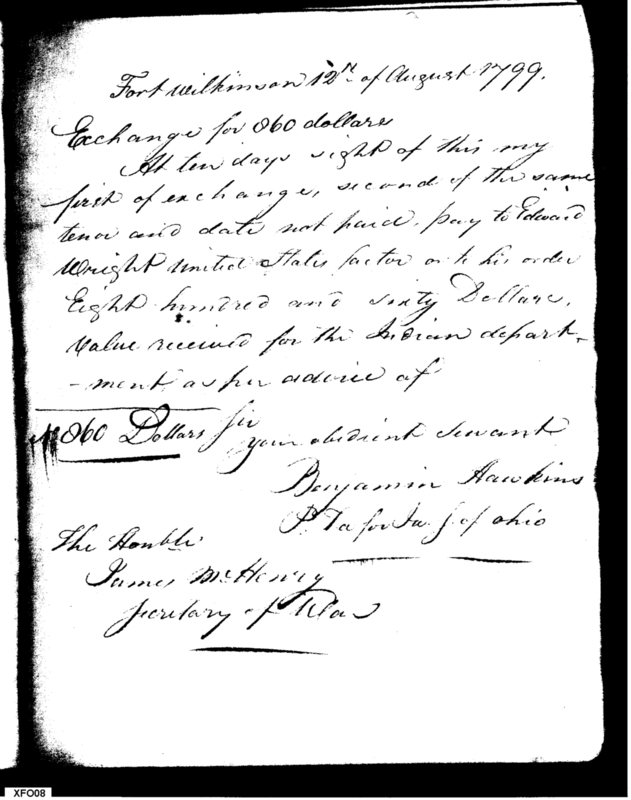 Fort Wilkinson 12th of August 1799.
Exchange for 860 dollars
At ten days sight of this my
first of exchange, second of the same
tenor and date not paid, pay to Edward
Wright United States factor or to his order
Eight hundred and sixty Dollars,
value received for the Indian depart-
-ment as per advice of
860 Dollars Sir
your obedient servant
Benjamin Hawkins
P. T a for In. S. of Ohio
The Honble.
James McHenry
Secretary of War
XFO08